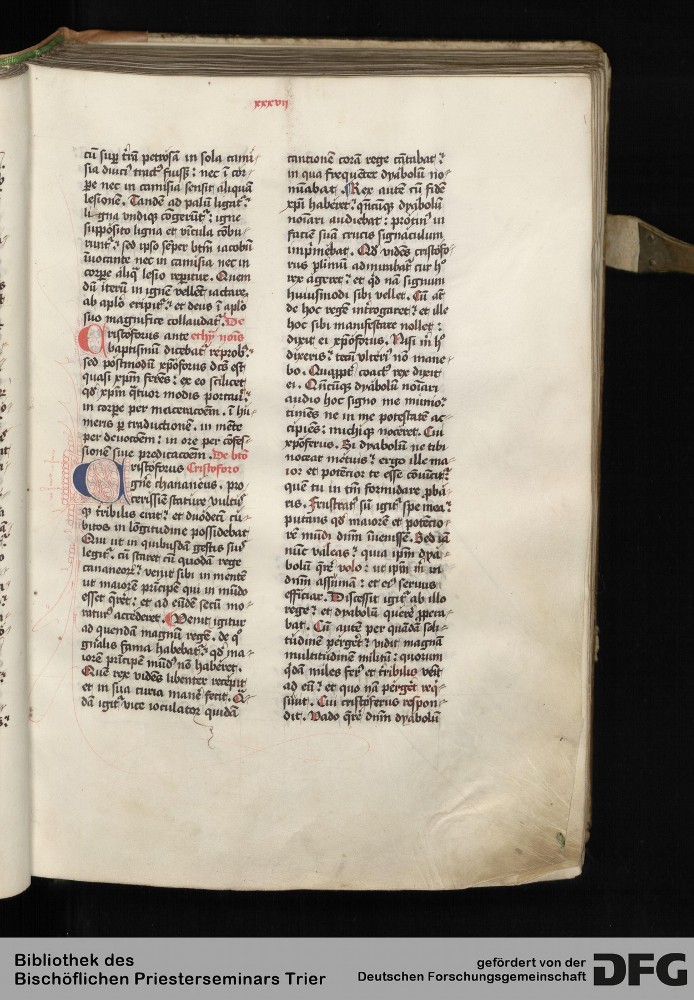 xxxvii
cū suꝑ t̄rā petrosā in sola cami-
sia diuci9 tract9 fuiss;: nec ī cor-
ꝑe nec in camisia sensit aliquā
lesionē. Tandē ad palū ligat᷑:
ligna vndiqꝫ cōgerūt᷑: igne
supposito ligna et vīcula cōbu-
runt᷑: sed ipso sēper btm̄ iacobū
īuocante nec in camisia nec in
corpe aliq̄ lesio rep̄itur. Quem
dū iterū in ignē vellēt iactare,
ab apl̄o eripit᷑: et deus ī apl̄o
suo magnifice collaudat᷑. De
Cristoforus ante ethy᷑ nois
baptismū dicebat᷑ reprob9:
sed postmodū xp̄oforus dc̄s est
quasi xp̄m ferēs: ex eo scilicet
qd̓ xp̄m q̄tuor modis portauit:
in corpe per maceracōem. ī hu-
meris ꝑ traductionē. in mēte
per deuocōem: in ore per cōfes-
sionē siue predicacōem. De bt̄o
Cristoforus Cristoforo
gn̄e chananeus. pro
cerissīe stature vultu
qꝫ tribilis erat: et duodecī cu-
bitos in lōgitudine possidebat
Qui ut in quibusdā gestis suis
legit᷑. cū staret cū quodā rege
cananeoꝝ: venit sibi in mentē
ut maiorē prīcipē qui in mūdo
esset q̄ret: et ad eūdē secū mo-
ratur9 accēderet. Venit igitur
ad quendā magnū regē. de q̊
gn̄alis fama habebat᷑: qd̓ ma-
iorē prīcipē mūd9 nō haberet.
Quē rex vidēs libenter recepit
et in sua curia manē fecit. Q̄-
dā igit᷑ vice ioculator quidā
cantionē corā rege cātabat:
in qua freq̄uēter dyabolū no-
mīabat. Rex autē cū fidē
xp̄i haberet: q̄ncūqꝫ dyabolū
noīari audiebat: protin9 in
faciē suā crucis signaculum
imprimebat. Qd̓ vidēs cristofo-
rus plimū admirabat᷑ cur h̊
rex ageret: et qd̓ nā signum
huiusmodi sibi vellet. Cū aut̄
de hoc regē īt̓rogaret: et ille
hoc sibi manifestare nollet:
dixit ei xp̄oforus. Nisi m̄ h̊
dixeris: tecū vlteri9 nō mane-
bo. Quapp̄e coact9 rex dixit
ei. Q̄ncūqꝫ dyabolū noīari
audio hoc signo me munio:
timēs ne in me potestatē ac-
cipiēs: michiqꝫ noceret. Cui
xp̄oferus. Si dyabolū ne tibi
noceat metuis: ergo ille ma-
ior et potētior te esse cōuīcit᷑:
quē tu in tm̄ formidare ꝓba-
ris. Frustrat9 sū igit᷑ spe mea:
putans qd̓ maiorē et potētio-
rē mūdi dn̄m īuenissē. Sed iā
nūc valeas: quia ip̄m dya-
bolū q̄rē volo: ut ip̄m m̄ in
dn̄m assumā: et ei9 seruus
efficiar. Discessit igit᷑ ab illo
rege: et dyabolū querē ꝓpera-
bat. Cū autē per quādā soli-
tudinē pergeret: vidit magnā
multitudinē militū: quorum
q̄dā miles fer9 et tribilis venit
ad eū: et quo nā pergeret req̄-
siuit. Cui cristoferus respon-
dit. Vado q̄rē dn̄m dyabolū
Bibliothek des
Bischöflichen Priesterseminars Trier
gefördert von der
Deutschen Forschungsgemeinschaft
DFG